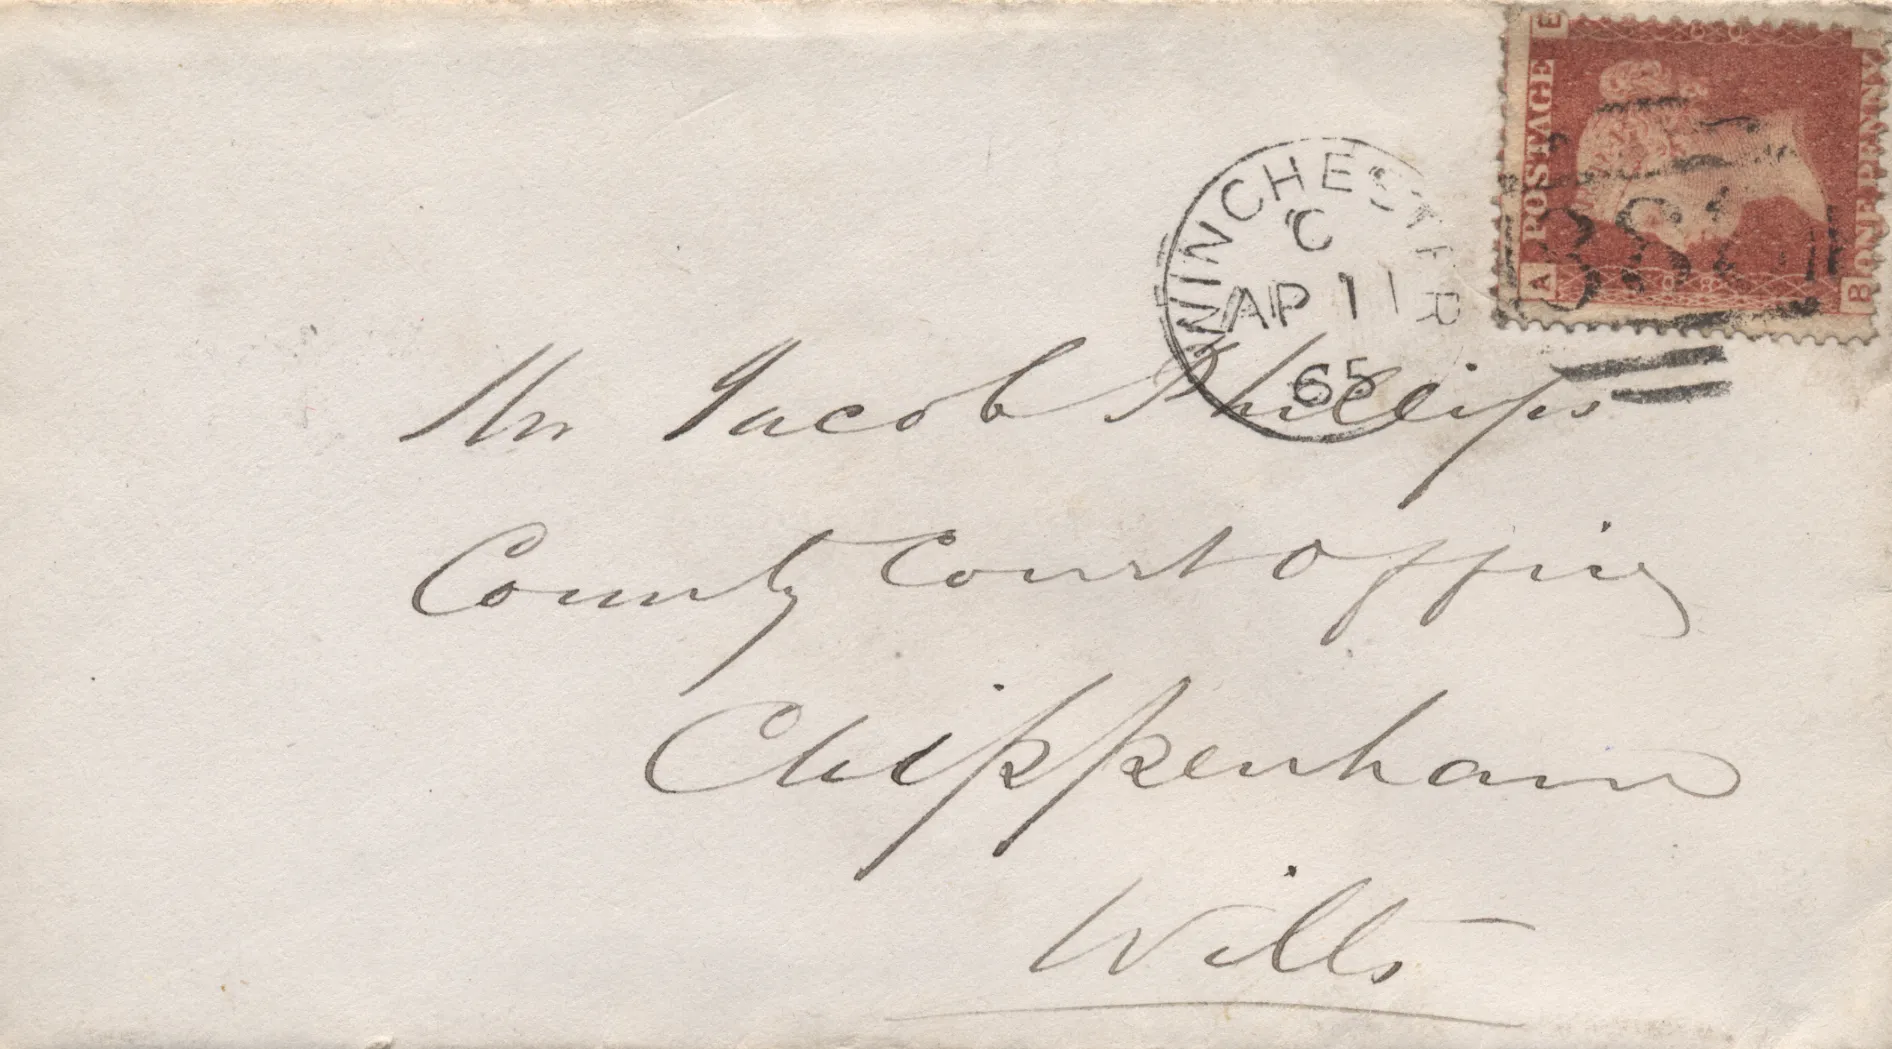 POSTAGE
ONE PENNY
E
A
B
WINCHESTER
C
AP 11
65
Mr Jacob Phillips
County Court Office
Chippenham
Wilts